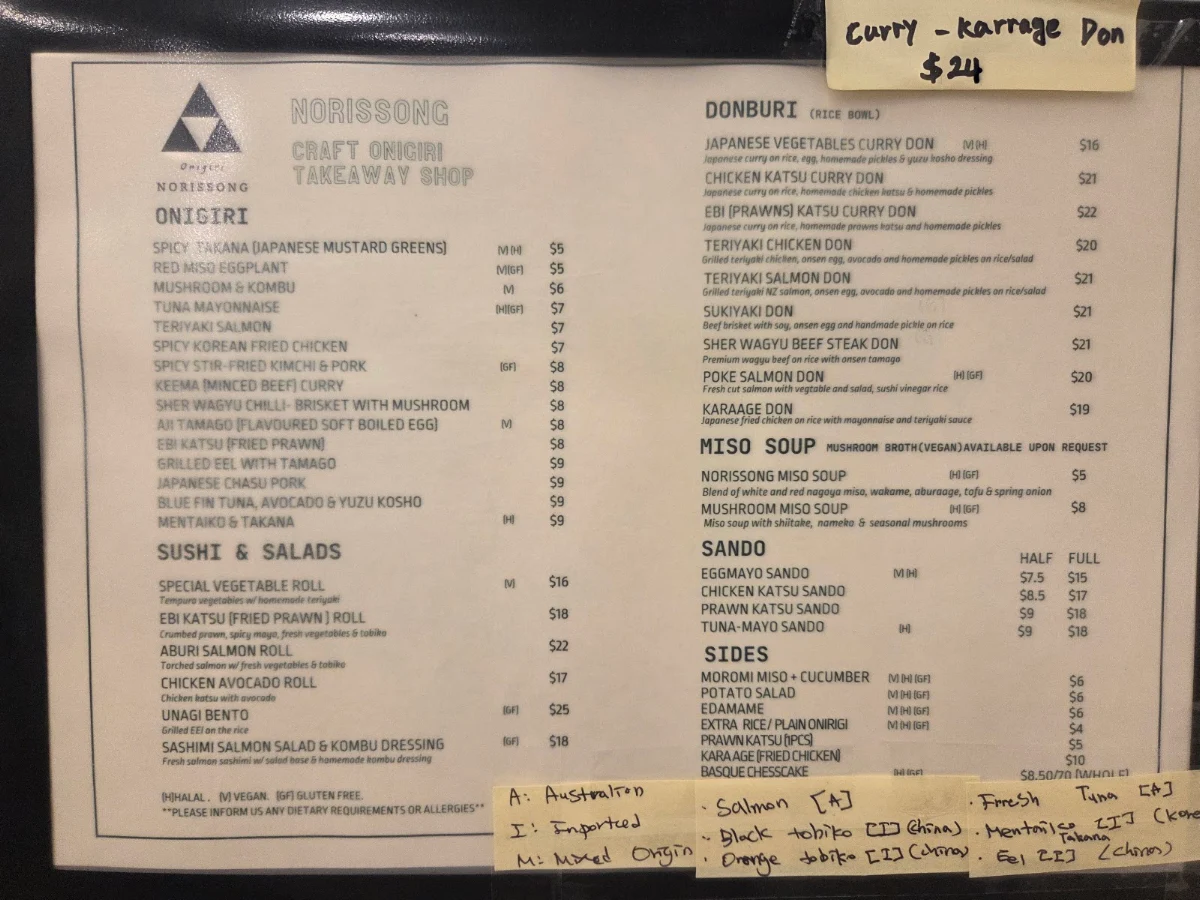 Curry - Karrage Don
$24
Onigiri
NORISSONG
NORISSONG
CRAFT ONIGIRI
TAKEAWAY SHOP
ONIGIRI
SPICY TAKANA (JAPANESE MUSTARD GREENS) (V) (H) $5
RED MISO EGGPLANT (V)(GF) $5
MUSHROOM & KOMBU (V) $6
TUNA MAYONNAISE (H)(GF) $7
TERIYAKI SALMON $7
SPICY KOREAN FRIED CHICKEN $7
SPICY STIR-FRIED KIMCHI & PORK (GF) $8
KEEMA (MINCED BEEF) CURRY $8
SHER WAGYU CHILLI- BRISKET WITH MUSHROOM $8
AJI TAMAGO (FLAVOURED SOFT BOILED EGG) (V) $8
EBI KATSU (FRIED PRAWN) $8
GRILLED EEL WITH TAMAGO $9
JAPANESE CHASU PORK $9
BLUE FIN TUNA, AVOCADO & YUZU KOSHO $9
MENTAIKO & TAKANA (H) $9
SUSHI & SALADS
SPECIAL VEGETABLE ROLL (V) $16
Tempura vegetables w/ homemade teriyaki
EBI KATSU (FRIED PRAWN ) ROLL $18
Crumbed prawn, spicy mayo, fresh vegetables & tobiko
ABURI SALMON ROLL $22
Torched salmon w/ fresh vegetables & tobiko
CHICKEN AVOCADO ROLL $17
Chicken katsu with avocado
UNAGI BENTO (GF) $25
Grilled EEl on the rice
SASHIMI SALMON SALAD & KOMBU DRESSING (GF) $18
Fresh salmon sashimi w/ salad base & homemade kombu dressing
(H)HALAL. (V) VEGAN. (GF) GLUTEN FREE.
**PLEASE INFORM US ANY DIETARY REQUIREMENTS OR ALLERGIES**
DONBURI (RICE BOWL)
JAPANESE VEGETABLES CURRY DON (V) (H) $16
Japanese curry on rice, egg, homemade pickles & yuzu kosho dressing
CHICKEN KATSU CURRY DON $21
Japanese curry on rice, homemade chicken katsu & homemade pickles
EBI (PRAWNS) KATSU CURRY DON $22
Japanese curry on rice, homemade prawns katsu and homemade pickles
TERIYAKI CHICKEN DON $20
Grilled teriyaki chicken, onsen egg, avocado and homemade pickles on rice/salad
TERIYAKI SALMON DON $21
Grilled teriyaki NZ salmon, onsen egg, avocado and homemade pickles on rice/salad
SUKIYAKI DON $21
Beef brisket with soy, onsen egg and handmade pickle on rice
SHER WAGYU BEEF STEAK DON $21
Premium wagyu beef on rice with onsen tamago
POKE SALMON DON (H) (GF) $20
Fresh cut salmon with vegtable and salad, sushi vinegar rice
KARAAGE DON $19
Japanese fried chicken on rice with mayonnaise and teriyaki sauce
MISO SOUP MUSHROOM BROTH(VEGAN)AVAILABLE UPON REQUEST
NORISSONG MISO SOUP (H) (GF) $5
Blend of white and red nagoya miso, wakame, aburaage, tofu & spring onion
MUSHROOM MISO SOUP (H) (GF) $8
Miso soup with shiitake, nameko & seasonal mushrooms
SANDO HALF FULL
EGGMAYO SANDO (V) (H) $7.5 $15
CHICKEN KATSU SANDO $8.5 $17
PRAWN KATSU SANDO $9 $18
TUNA-MAYO SANDO (H) $9 $18
SIDES
MOROMI MISO + CUCUMBER (V) (H) (GF) $6
POTATO SALAD (V) (H) (GF) $6
EDAMAME (V) (H) (GF) $6
EXTRA RICE/ PLAIN ONIRIGI (V) (H) (GF) $4
PRAWN KATSU (1PCS) $5
KARAAGE (FRIED CHICKEN) $10
BASQUE CHESSCAKE (H) (GF) $8.50/70 (WHOLE)
A: Australian
I: Imported
M: Mixed Origin
· Salmon [A]
· Black tobiko [I] (China)
· Orange tobiko [I] (China)
· Frresh Tuna [A]
· Mentaiko Takana [I] (Kore
· Eel [I] (China)